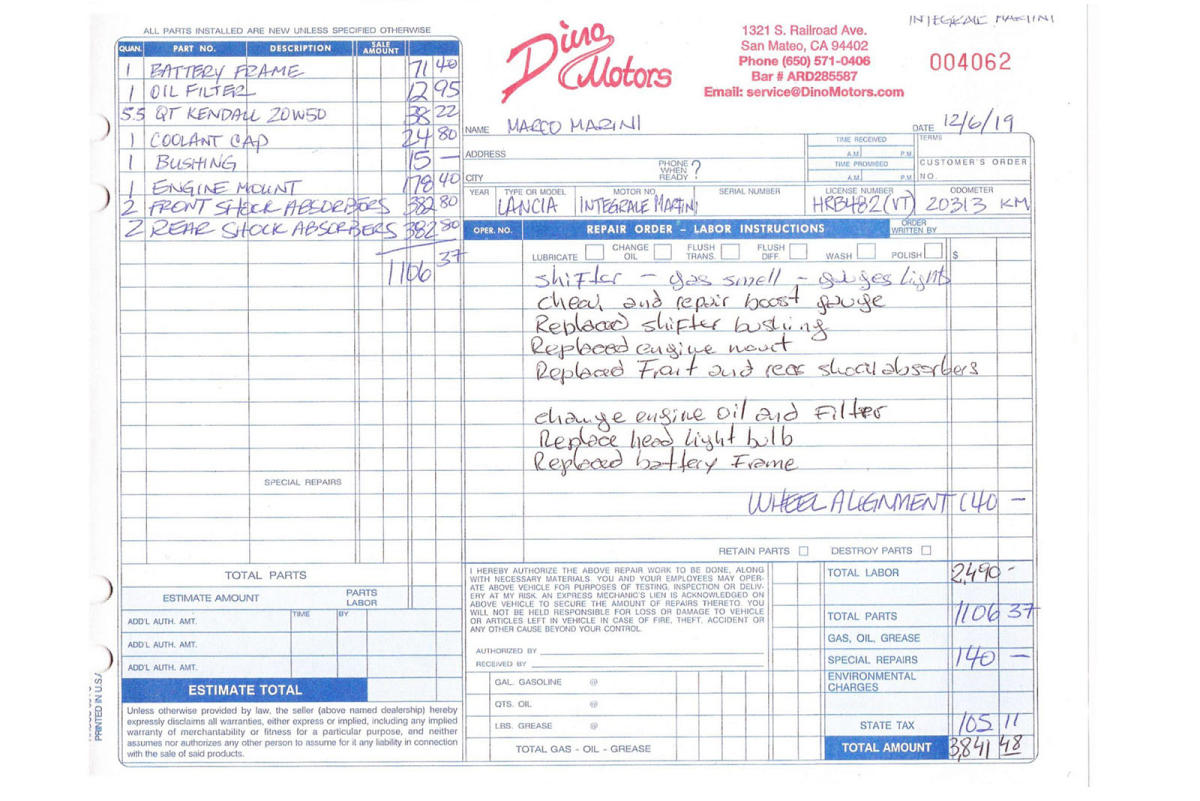 INTEGRALE MARTINI
ALL PARTS INSTALLED ARE NEW UNLESS SPECIFIED OTHERWISE
QUAN. PART NO. DESCRIPTION SALE AMOUNT
1 BATTERY FRAME 71 40
1 OIL FILTER 12 95
5.5 QT KENDALL 20W50 38 22
1 COOLANT CAP 24 80
1 BUSHING 15 —
1 ENGINE MOUNT 178 40
2 FRONT SHOCK ABSORBERS 382 80
2 REAR SHOCK ABSORBERS 382 80
1106 37
SPECIAL REPAIRS
TOTAL PARTS
ESTIMATE AMOUNT PARTS LABOR
ADD'L AUTH. AMT. TIME BY
ADD'L AUTH. AMT.
ADD'L AUTH. AMT.
ESTIMATE TOTAL
Unless otherwise provided by law, the seller (above named dealership) hereby
expressly disclaims all warranties, either express or implied, including any implied
warranty of merchantability or fitness for a particular purpose, and neither
assumes nor authorizes any other person to assume for it any liability in connection
with the sale of said products.
PRINTED IN U.S.A.
Dino Motors
1321 S. Railroad Ave.
San Mateo, CA 94402
Phone (650) 571-0406
Bar # ARD285587
Email: service@DinoMotors.com
004062
NAME MARCO MARINI DATE 12/6/19
ADDRESS TIME RECEIVED A.M. P.M. TERMS
CITY PHONE WHEN READY ? TIME PROMISED A.M. P.M. CUSTOMER'S ORDER NO.
YEAR TYPE OR MODEL MOTOR NO. SERIAL NUMBER LICENSE NUMBER ODOMETER
LANCIA INTEGRALE MARTINI HRB482(VT) 20313 KM
OPER. NO. REPAIR ORDER – LABOR INSTRUCTIONS ORDER WRITTEN BY
LUBRICATE CHANGE OIL FLUSH TRANS. FLUSH DIFF. WASH POLISH $
shifter - gas smell - gauges lights
cheak and repair boost gauge
Replaced shifter bushing
Replaced engine mout
Replaced Front and rear shock absorbers
change engine oil and Filter
Replace head light bulb
Replaced battery Frame
WHEEL ALIGNMENT 140 —
RETAIN PARTS DESTROY PARTS
I HEREBY AUTHORIZE THE ABOVE REPAIR WORK TO BE DONE, ALONG
WITH NECESSARY MATERIALS. YOU AND YOUR EMPLOYEES MAY OPER-
ATE ABOVE VEHICLE FOR PURPOSES OF TESTING, INSPECTION OR DELIV-
ERY AT MY RISK. AN EXPRESS MECHANIC'S LIEN IS ACKNOWLEDGED ON
ABOVE VEHICLE TO SECURE THE AMOUNT OF REPAIRS THERETO. YOU
WILL NOT BE HELD RESPONSIBLE FOR LOSS OR DAMAGE TO VEHICLE
OR ARTICLES LEFT IN VEHICLE IN CASE OF FIRE, THEFT, ACCIDENT OR
ANY OTHER CAUSE BEYOND YOUR CONTROL.
AUTHORIZED BY
RECEIVED BY
GAL. GASOLINE @
QTS. OIL @
LBS. GREASE @
TOTAL GAS - OIL - GREASE
TOTAL LABOR 2,490 -
TOTAL PARTS 1106 37
GAS, OIL, GREASE
SPECIAL REPAIRS 140 —
ENVIRONMENTAL CHARGES
STATE TAX 105 11
TOTAL AMOUNT 3,841 48